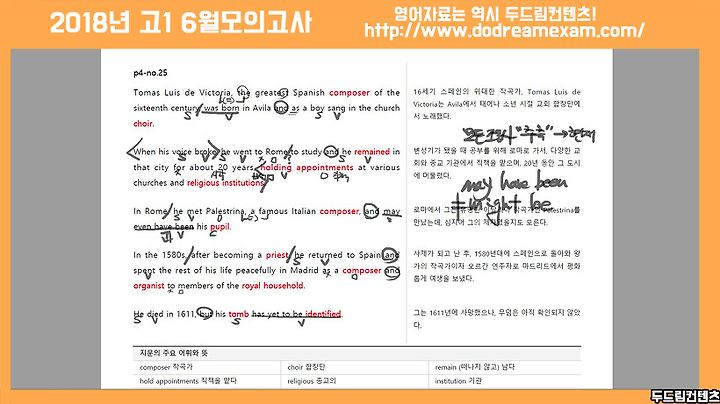 2018년 고1 6월모의고사
영어자료는 역시 두드림컨텐츠!
http://www.dodreamexam.com/
p4-no.25
Tomas Luis de Victoria, the greatest Spanish composer of the
sixteenth century, was born in Avila and as a boy sang in the church
choir.
When his voice broke, he went to Rome to study and he remained in
that city for about 20 years, holding appointments at various
churches and religious institutions.
In Rome, he met Palestrina, a famous Italian composer, and may
even have been his pupil.
In the 1580s, after becoming a priest, he returned to Spain and
spent the rest of his life peacefully in Madrid as a composer and
organist to members of the royal household.
He died in 1611, but his tomb has yet to be identified.
16세기 스페인의 위대한 작곡가, Tomas Luis de
Victoria는 Avila에서 태어나 소년 시절 교회 합창단에
서 노래했다.
"추측" → 현재
변성기가 됐을 때 공부를 위해 로마로 가서, 다양한 교
회와 종교 기관에서 직책을 맡으며, 20년 동안 그 도시
에 머물렀다.
may have been
might be
로마에서 그는 작곡가인 Palestrina를
만났는데, 심지어 그의 제자였을지도 모른다.
사제가 되고 난 후, 1580년대에 스페인으로 돌아와 왕
가의 작곡가이자 오르간 연주자로 마드리드에서 평화
롭게 여생을 보냈다.
그는 1611년에 사망했으나, 무덤은 아직 확인되지 않았
다.
지문의 주요 어휘와 뜻
composer 작곡가 choir 합창단 remain (떠나지 않고) 남다
hold appointments 직책을 맡다 religious 종교의 institution 기관
두드림컨텐츠